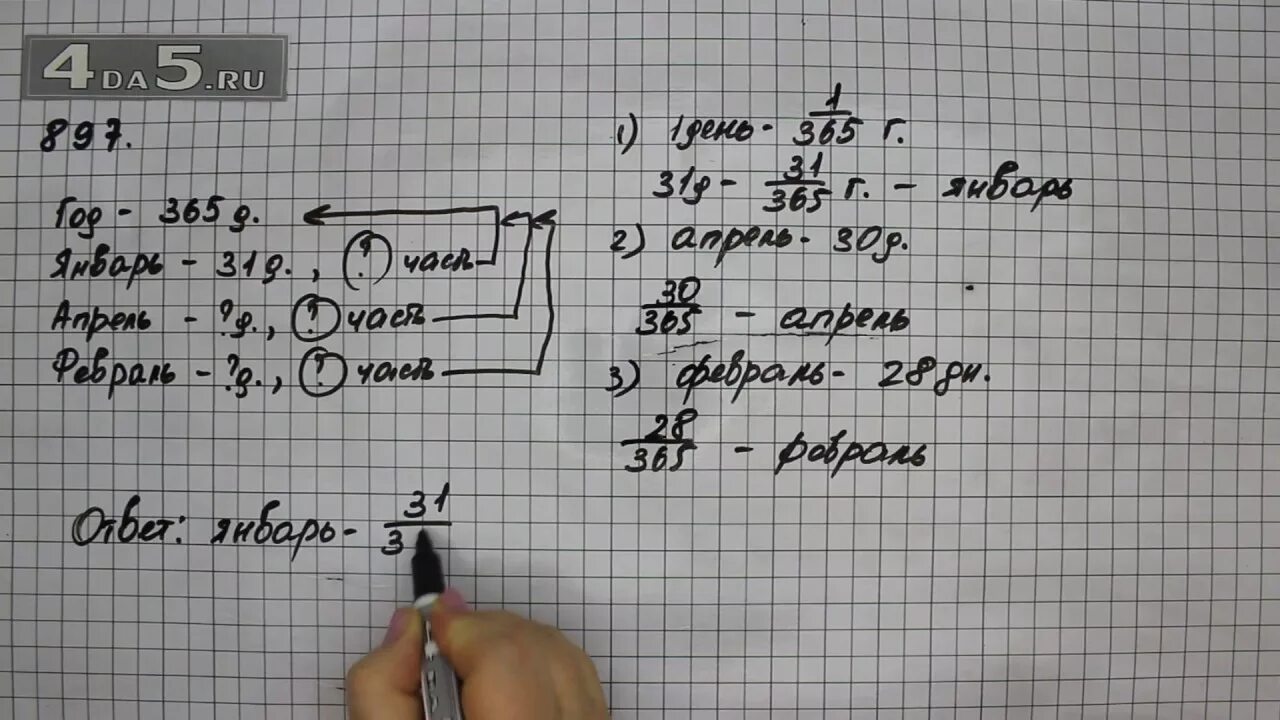 4DA5.RU
897.
Год - 365 д.
Январь - 31 д., ? часть
Апрель - ? д., ? часть
Февраль - ? д., ? часть
1) 1 день - 1/365 г.
31 д - 31/365 г. - январь
2) апрель - 30 д.
30/365 - апрель
3) февраль - 28 дн.
28/365 - февраль
Ответ: январь - 31/3